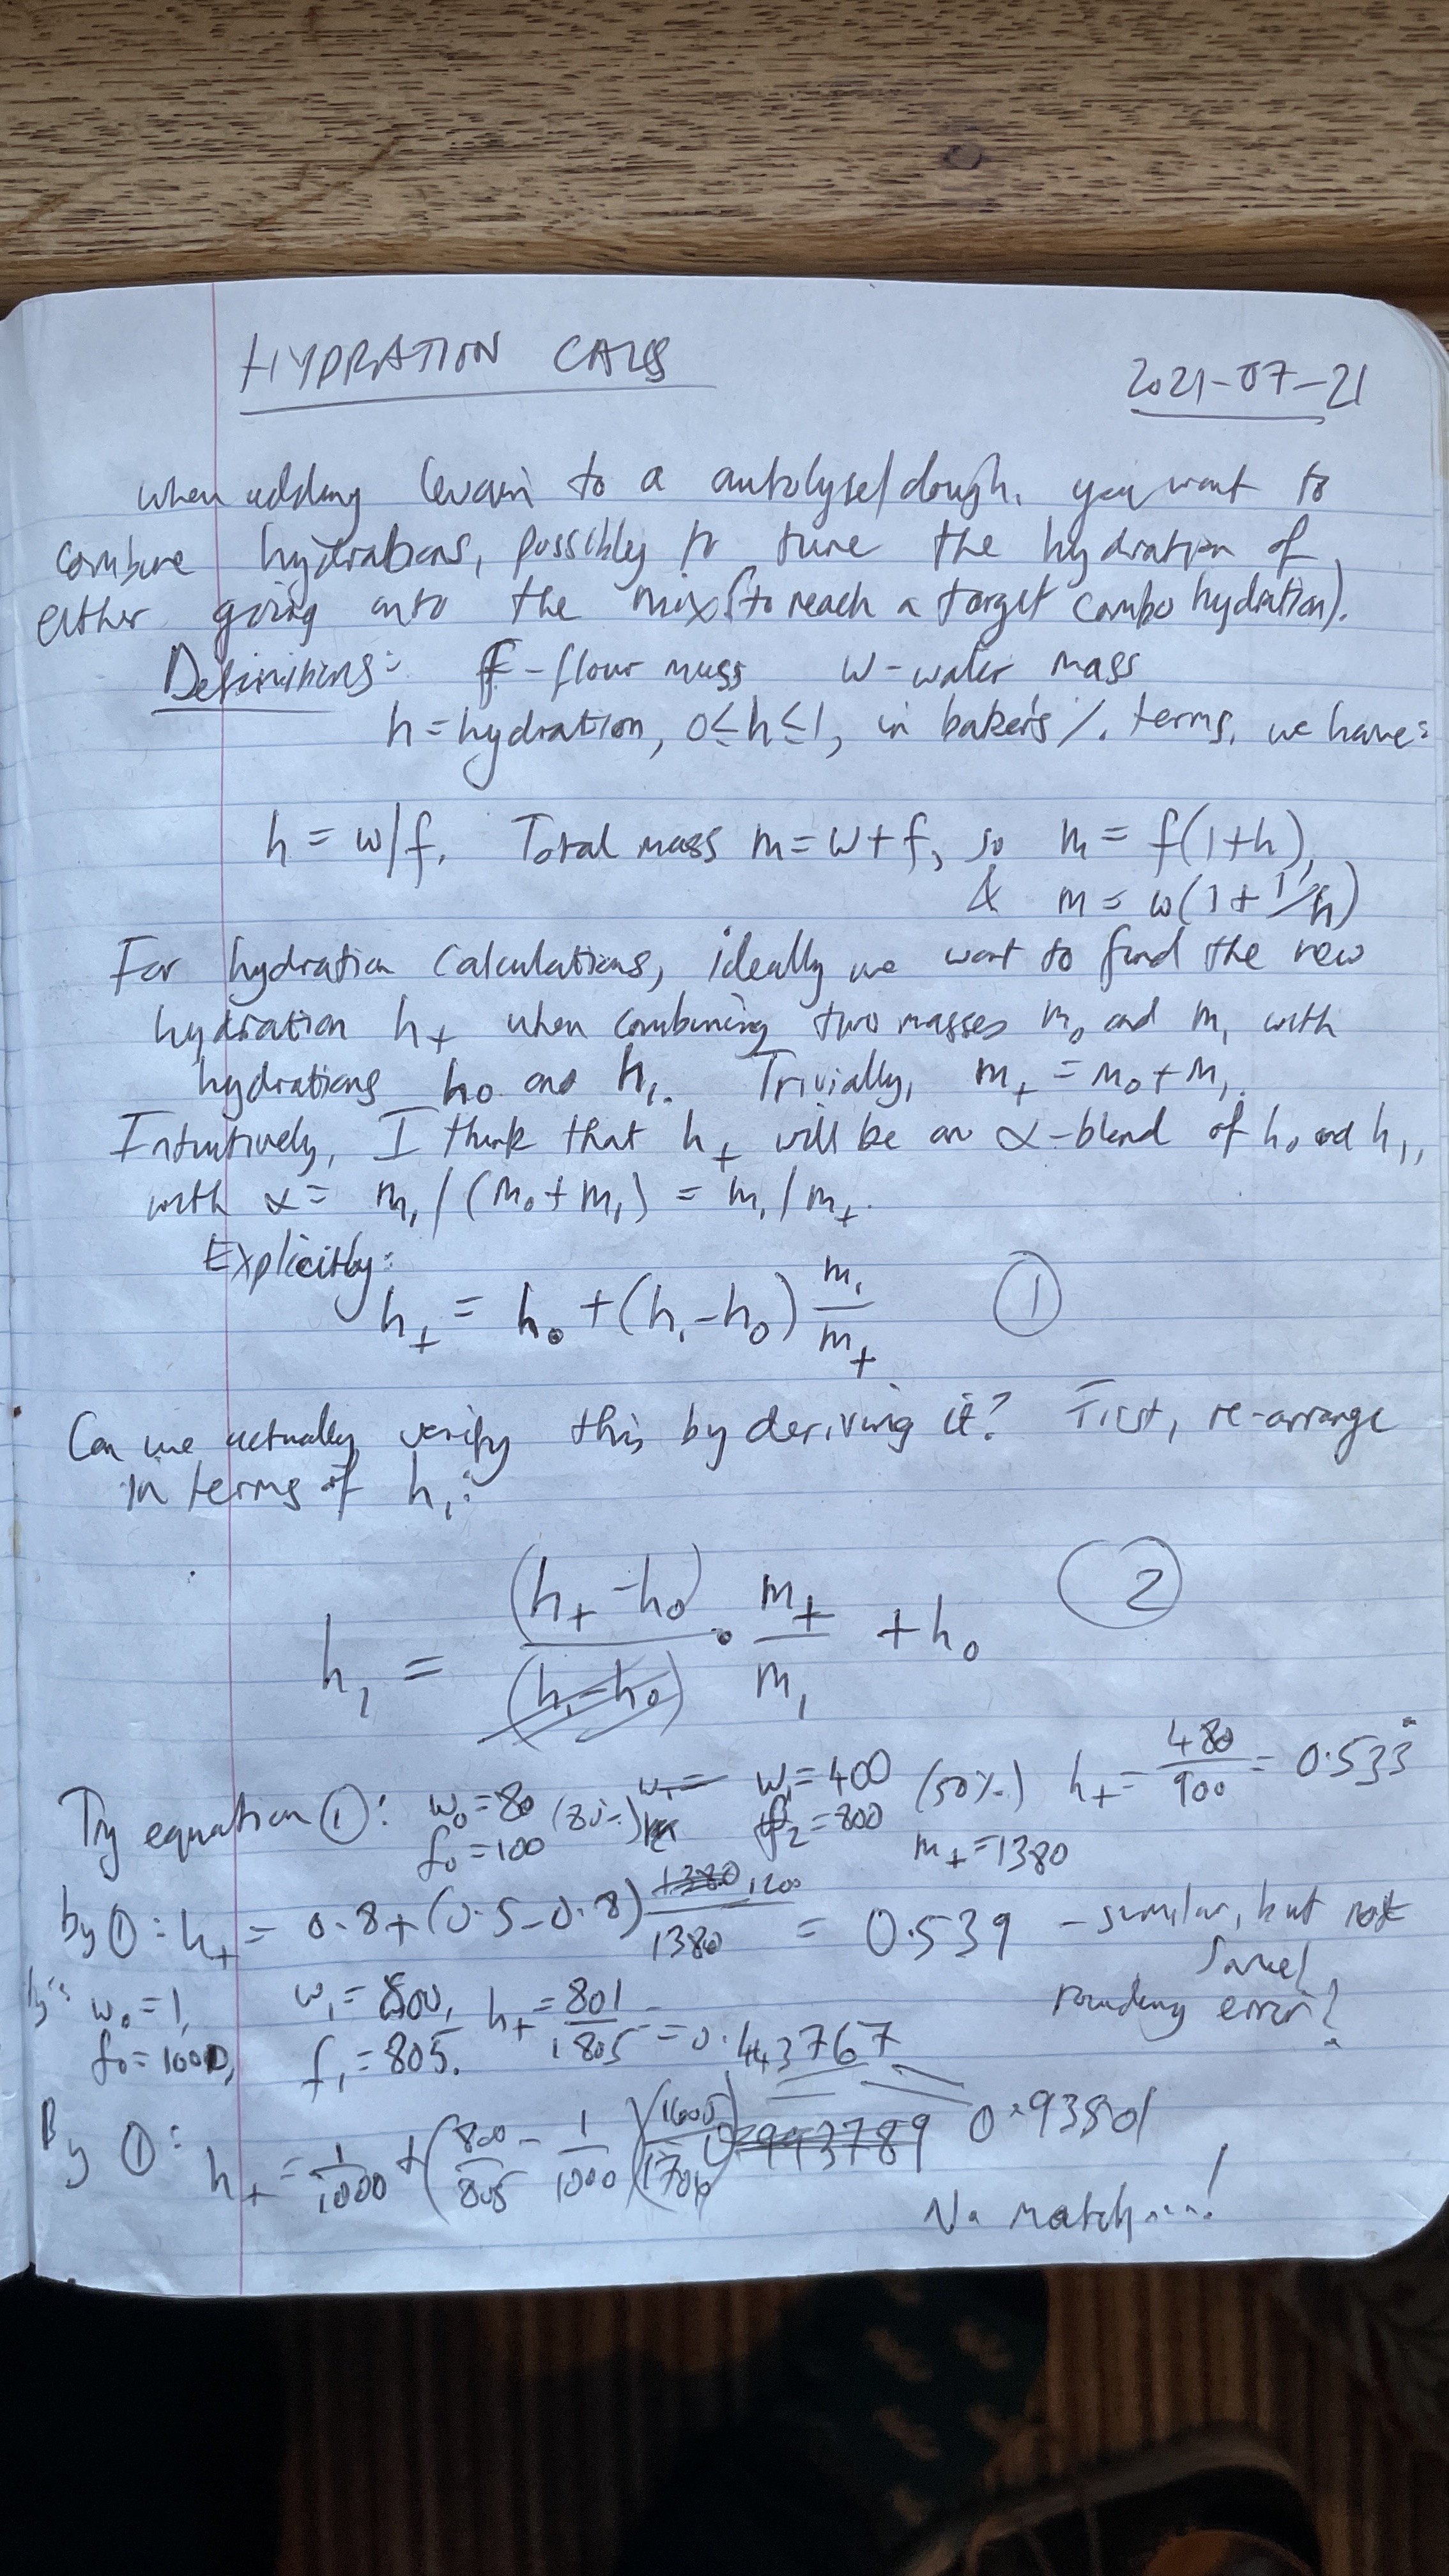 HYDRATION CALCS
2021-07-21
When adding levain to a autolyse/dough, you want to
combine hydrations, possibly to tune the hydration of
either going into the mix (to reach a target combo hydration).
Definitions: f - flour mass w - water mass
h = hydration, 0≤h≤1, in baker's % terms, we have:
h = w/f. Total mass m = w+f, so m = f(1+h),
& m = w(1+1/h)
For hydration calculations, ideally we want to find the new
hydration h₊ when combining two masses m₀ and m₁ with
hydrations h₀ and h₁. Trivially, m₊ = m₀+m₁.
Intuitively, I think that h₊ will be an α-blend of h₀ and h₁,
with α = m₁/(m₀+m₁) = m₁/m₊.
Explicitly:
h₊ = h₀ + (h₁-h₀) m₁/m₊ ①
Can we actually verify this by deriving it? First, re-arrange
in terms of h₁:
h₁ = (h₊-h₀)/(h₁-h₀) · m₊/m₁ + h₀ ②
Try equation ①: w₀=80 (80%) w₁=400 (50%) h₊ = 480/900 = 0.533
f₀=100 f₂=800 m₊=1380
by ①: h₊ = 0.8+(0.5-0.8) 1380 1200/1380 = 0.539 - similar, but not
same!
rounding error?
w₀=1, w₁=800, h₊ = 801/1805 = 0.443767
f₀=1000, f₁=805.
By ①: h₊ = 1/1000 + (800/805 - 1/1000) 993789 0.93801
No match...!